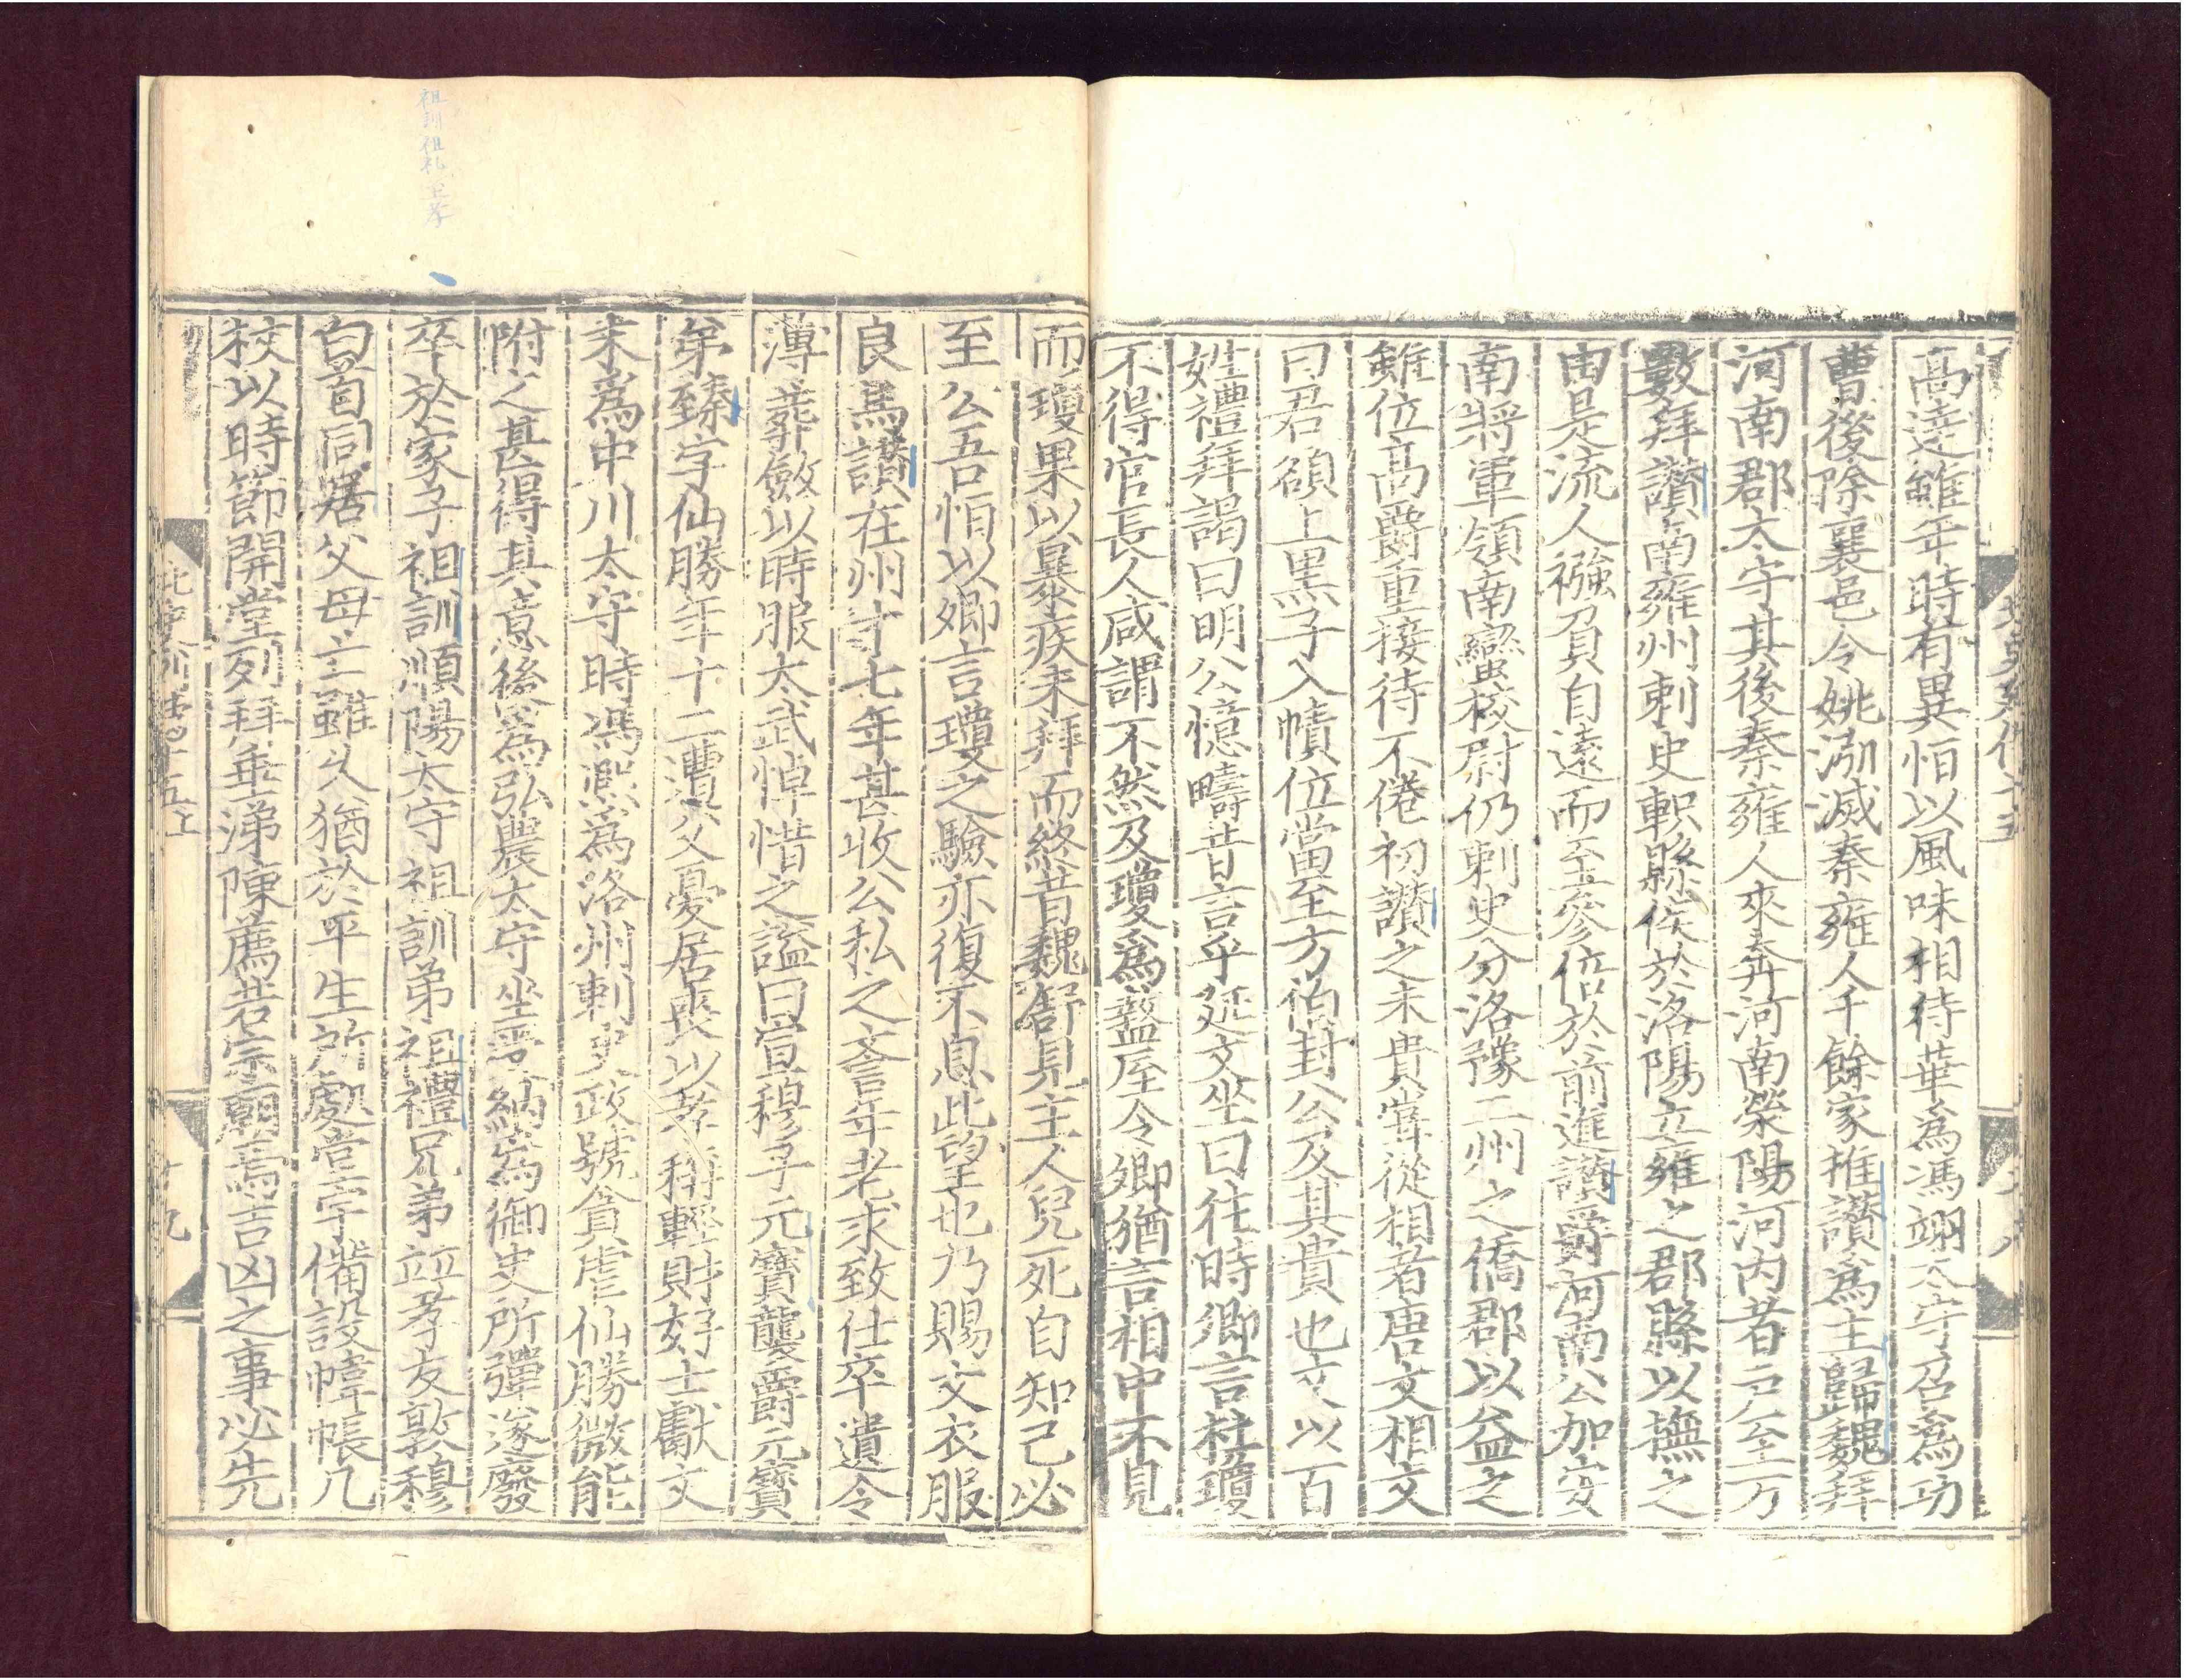 高達雖年時有異恒以風味相待華爲馮翊太守召爲功
曹後除襄邑令姚泓滅秦雍人千餘家推讃爲主歸魏拜
河南郡太守其後秦雍人來奔河南滎陽河内者戸至万
數拜讃南雍州刺史軹縣侯於洛陽立雍之郡縣以撫之
由是流人襁負自遠而至叅倍於前進讃爵河南公加安
南將軍領南蠻校尉仍刺史分洛豫二州之僑郡以益之
雖位髙爵重接待不倦初讃之未貴嘗從相者唐文相文
曰君額上黒子入幘位當至方伯封公及其貴也文以百
姓禮拜謁曰明公憶疇昔言乎延文坐曰往時卿言杜瓊
不得官長人咸謂不然及瓊爲盩厔令卿猶言相中不見
而瓊果以暴疾未拜而終昔魏舒見主人兒死自知己必
至公吾恒以卿言瓊之驗亦復不息此望也乃賜文衣服
良馬讃在州十七年甚收公私之譽年老求致仕卒遺令
薄葬斂以時服太武悼惜之謚曰宣穆子元寳襲爵元寳
弟臻字仙勝年十二遭父憂居喪以孝稱輕財好士獻文
末爲中川太守時馮熈爲洛州刺史政號貪虐仙勝微能
附之甚得其意後爲弘農太守坐受納爲御史所彈遂廢
卒於家子祖訓順陽太守祖訓弟祖禮兄弟竝孝友敦穆
白首同居父母亡雖乆猶於平生所處堂宇備設幃帳几
杖以時節開堂列拜垂涕陳薦若宗廟焉吉凶之事必先
北史列傳十五
十八
北史列傳十五
十九
祖訓祖礼至孝